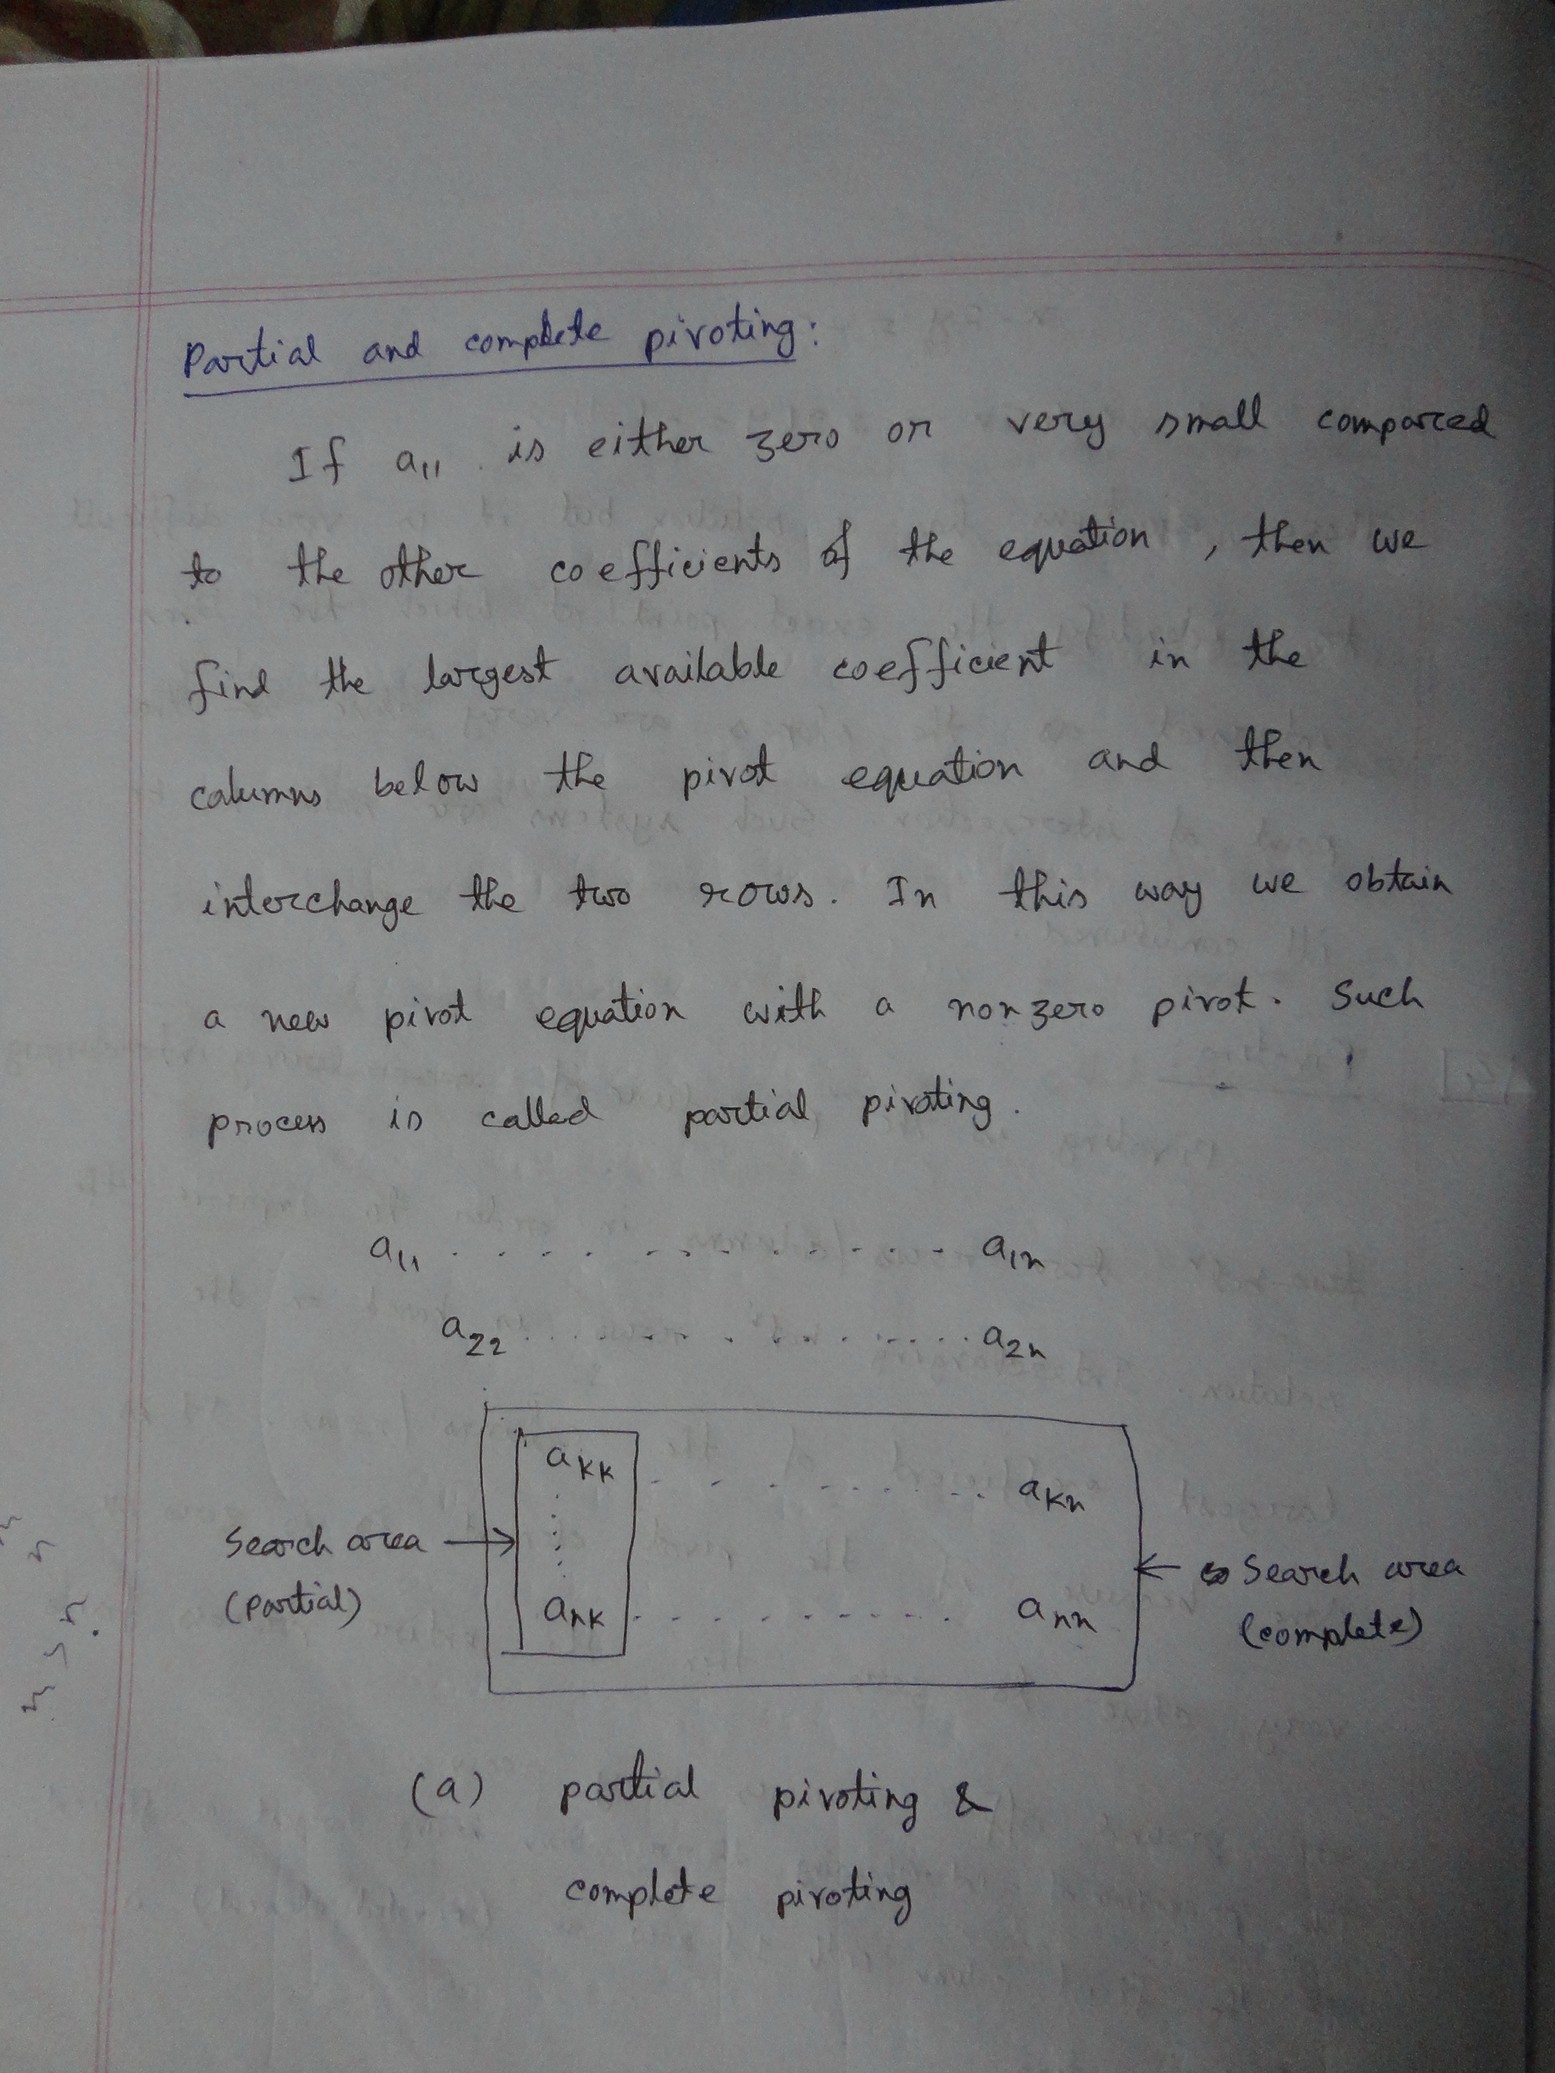 Partial and complete pivoting:
If a₁₁ is either zero or very small compared
to the other coefficients of the equation, then we
find the largest available coefficient in the
columns below the pivot equation and then
interchange the two rows. In this way we obtain
a new pivot equation with a nonzero pivot. Such
process is called partial pivoting.
a₁₁ . . . . . . . . . . . . a₁ₙ
a₂₂ . . . . . . . . . . . . a₂ₙ
aₖₖ . . . . . . . . . . aₖₙ
Search area → ← Search area
(partial) (complete)
aₙₖ . . . . . . . . . . aₙₙ
(a) partial pivoting &
complete pivoting